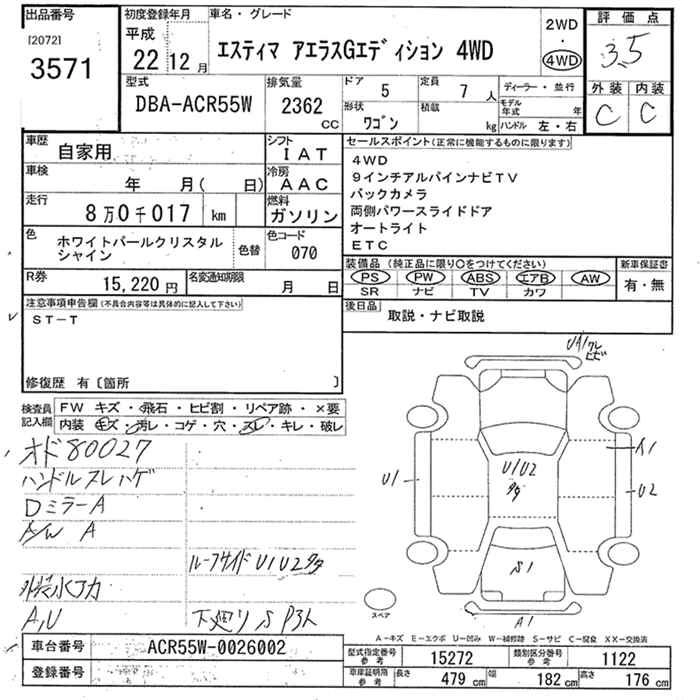 出品番号
[2072]
3571
初度登録年月
平成
22年12月
車名・グレード
エスティマ アエラスGエディション 4WD
2WD
・
4WD
評価点
3.5
外装 内装
C C
型式
DBA-ACR55W
排気量
2362
CC
ドア
5
定員
7人
形状
ワゴン
積載
kg
ディーラー・並行
モデル年式 年
ハンドル 左・右
車歴
自家用
シフト
IAT
車検
年 月( 日)
冷房
AAC
走行
8万0千017 km
燃料
ガソリン
色
ホワイトパールクリスタル
シャイン
色替
色コード
070
R券
15,220円
名変通知期限
月 日
セールスポイント(正常に機能するものに限ります)
4WD
9インチアルパインナビTV
バックカメラ
両側パワースライドドア
オートライト
ETC
装備品(純正品に限り○をつけてください)
PS PW ABS エアB AW
SR ナビ TV カワ
新車保証書
有・無
後日品
取説・ナビ取説
注意事項申告欄(不具合内容等は具体的に記入して下さい)
ST-T
修復歴 有〔箇所 〕
検査員
記入欄
FW キズ・飛石・ヒビ割・リペア跡・×要
内装・キズ・汚レ・コゲ・穴・スレ・キレ・破レ
オド80027
ハンドルスレハゲ
DミラーA
A/W A
ルーフサイドU1U2タタ
外装水アカ
A,U
下廻りS
UA1ワレ
ヒビ
A1
U1
U1U2
タタ
U2
S1
A1
スペア
A-キズ E-エクボ U-凹み W-補修跡 S-サビ C-腐食 XX-交換済
車台番号
ACR55W-0026002
登録番号
型式指定番号
参考
15272
類別区分番号
参考
1122
車庫証明用
参考
長さ
479 cm
幅
182 cm
高さ
176 cm